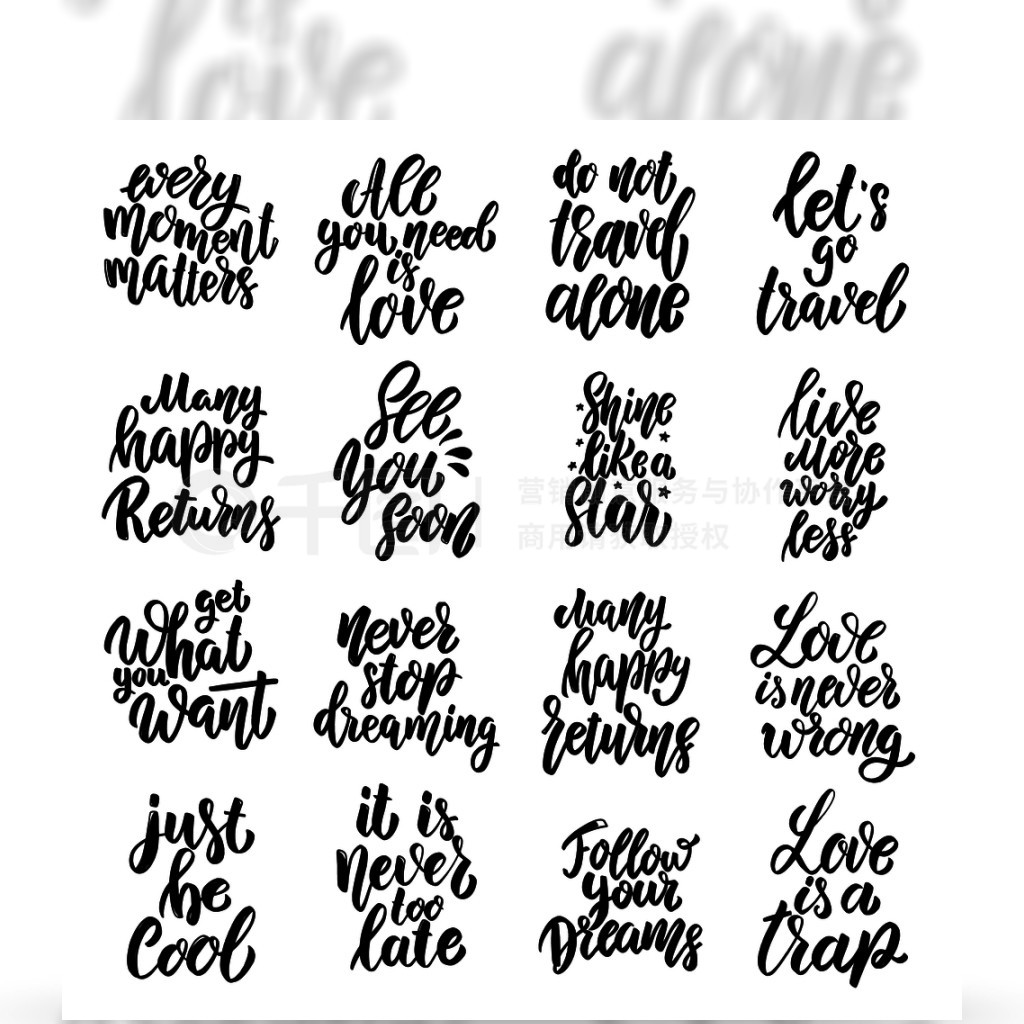 love
alone
every
moment
matters
All
you need
is
love
do not
travel
alone
let's
go
travel
Many
happy
Returns
See
You
Soon
Shine
like a
Star
live
More
worry
less
get
What
you
want
never
stop
dreaming
Many
happy
returns
Love
is never
wrong
just
be
Cool
it is
never
too
late
Follow
your
Dreams
Love
is a
trap